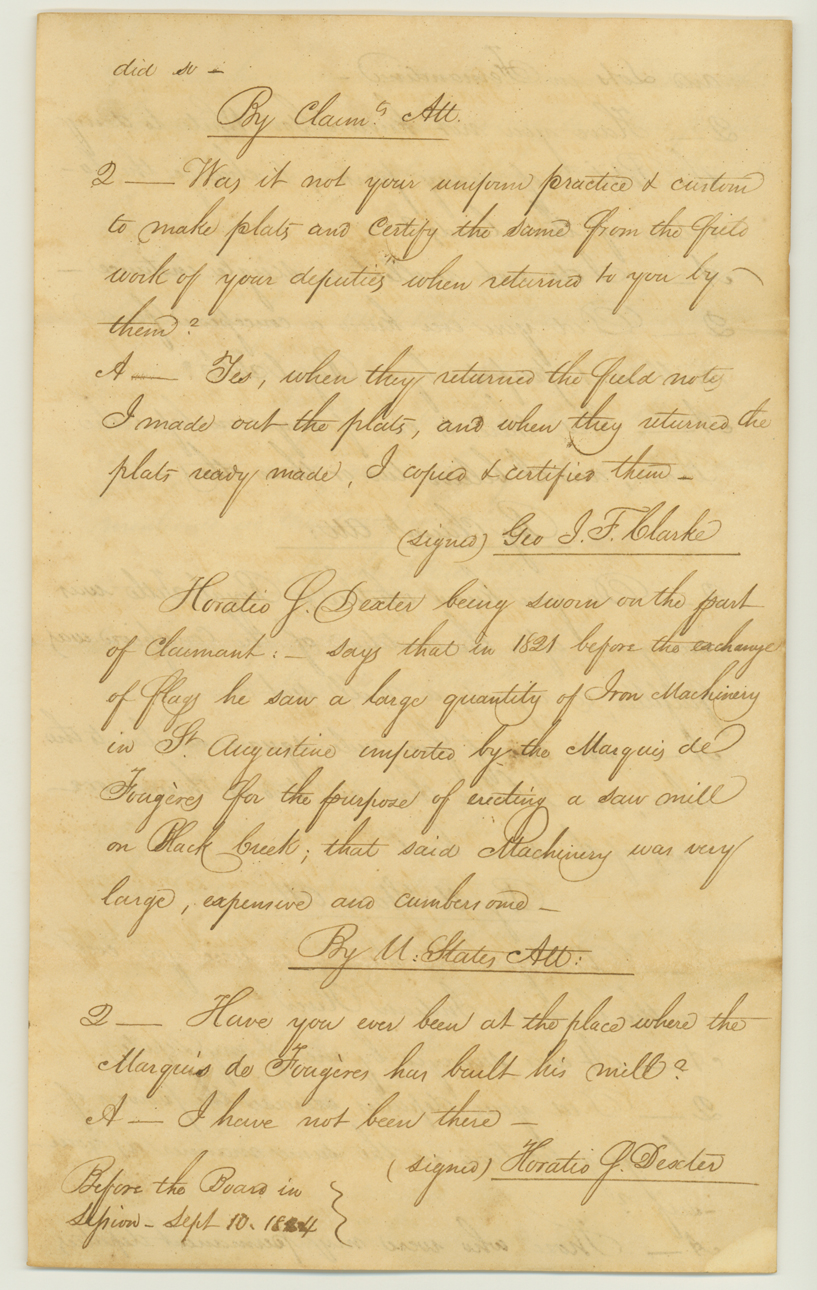 did so —
By Claimts Att.
Q — Was it not your uniform practice & custom
to make plats and certify the same from the field
work of your deputies when returned to you by
them?
A — Yes, when they returned the field notes
I made out the plats, and when they returned the
plats ready made, I copied & certified them —
(signed) Geo J. F. Clarke
Horatio G. Dexter being sworn on the part
of Claimant: — says that in 1821 before the exchange
of flags he saw a large quantity of Iron Machinery
in St. Augustine imported by the Marquis de
Fougères for the purpose of erecting a saw mill
on Black Creek; that said Machinery was very
large, expensive and cumbersome —
By U: States Att:
Q — Have you ever been at the place where the
Marquis de Fougères has built his mill?
A — I have not been there —
(signed) Horatio G. Dexter
Before the Board in
Session — Sept 10. 1824